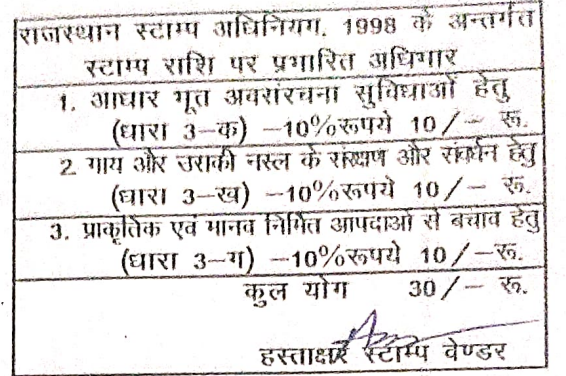 राजस्थान स्टाम्प अधिनियम, 1998 के अन्तर्गत
स्टाम्प राशि पर प्रभारित अधिभार
1. आधार भूत अवसंरचना सुविधाओं हेतु
(धारा 3-क) -10%रूपये 10/- रू.
2 गाय और उसकी नस्ल के संरक्षण और संवर्धन हेतु
(धारा 3-ख) -10%रूपये 10/- रू.
3. प्राकृतिक एवं मानव निर्मित आपदाओ से बचाव हेतु
(धारा 3-ग) -10%रूपये 10/-रू.
कुल योग 30/- रू.
हस्ताक्षर स्टाम्प वेण्डर